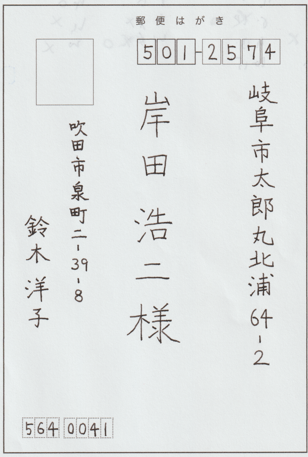 郵便はがき
501-2574
岐阜市太郎丸北浦64-2
岸田浩二様
吹田市泉町二-39-8
鈴木洋子
564 0041